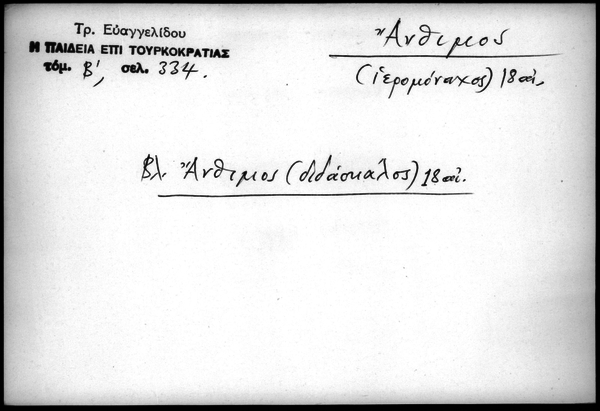 Τρ. Εὐαγγελίδου
Η ΠΑΙΔΕΙΑ ΕΠΙ ΤΟΥΡΚΟΚΡΑΤΙΑΣ
τόμ. Β', σελ. 334.
Ἄνθιμος
(ἱερομόναχος) 18 αἰ.
Βλ. Ἄνθιμος (διδάσκαλος) 18 αἰ.